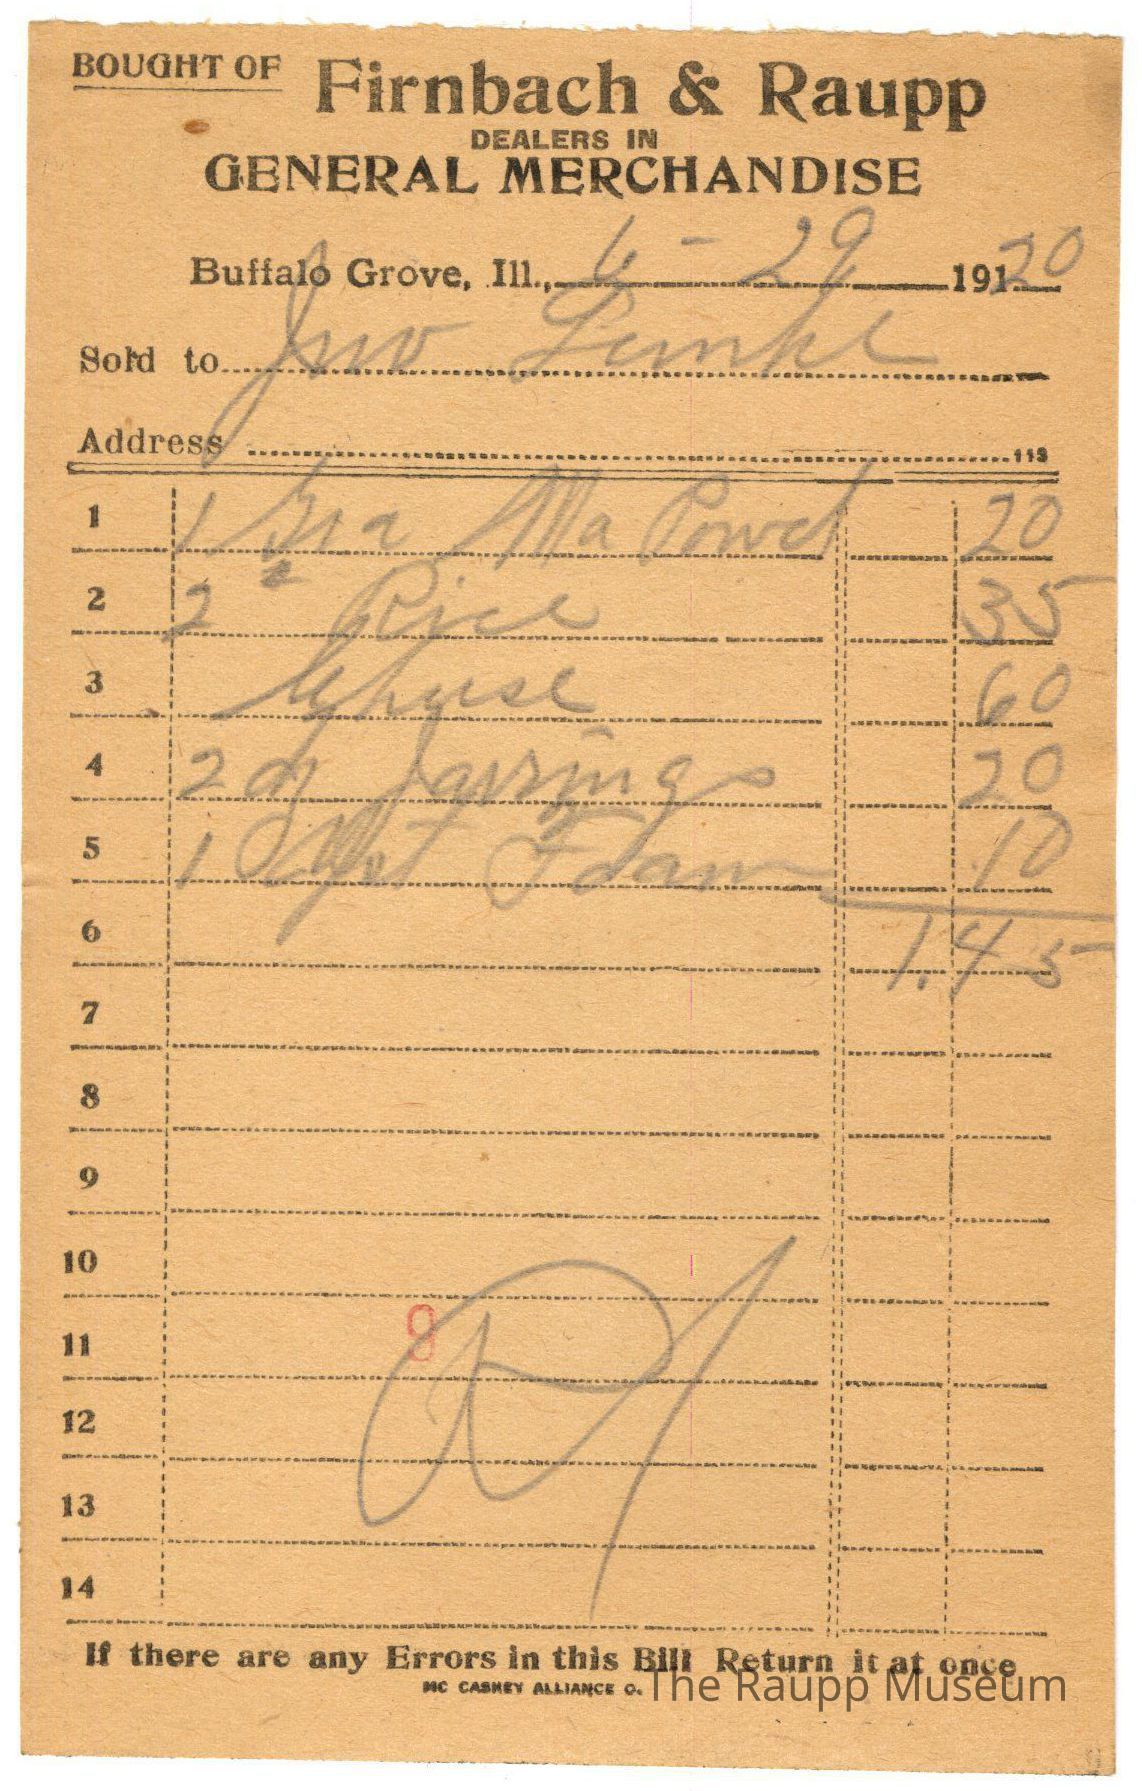 BOUGHT OF Firnbach & Raupp
DEALERS IN
GENERAL MERCHANDISE
Buffalo Grove, Ill., 6 - 29 191 20
Sold to Jno
Address 113
1 1 Gra Ma Powd 20
2 2 # Rice 35
3 Cheese 60
4 2 20
5 1 Yst Foam 10
6 1.45
7
8
9
10
11 8
12
13
14
If there are any Errors in this Bill Return it at once
MC CASKEY ALLIANCE O.
The Raupp Museum